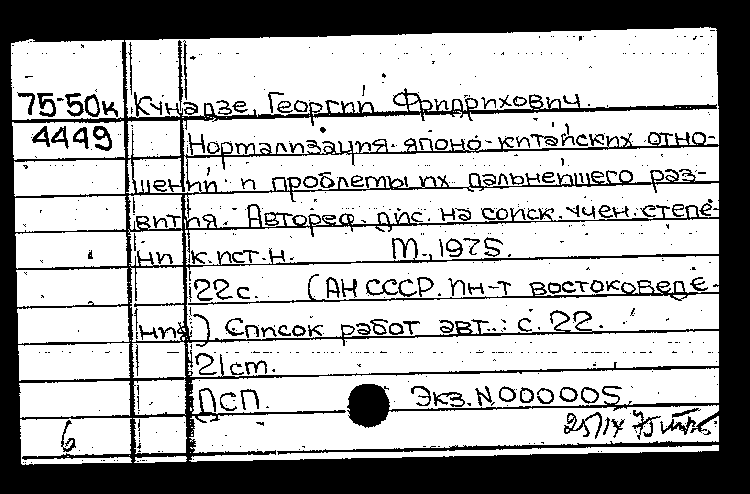 75-50к Кунадзе, Георгий Фридрихович.
4449 Нормализация японо-китайских отно-
шений и проблемы их дальнейшего раз-
вития. Автореф. дис. на соиск. учен. степе-
ни к.ист.н. М., 1975.
22 с. (АН СССР. Ин-т востоковеде-
ния). Список работ авт.: с. 22.
21 см.
ДСП. Экз. N 000005.
6